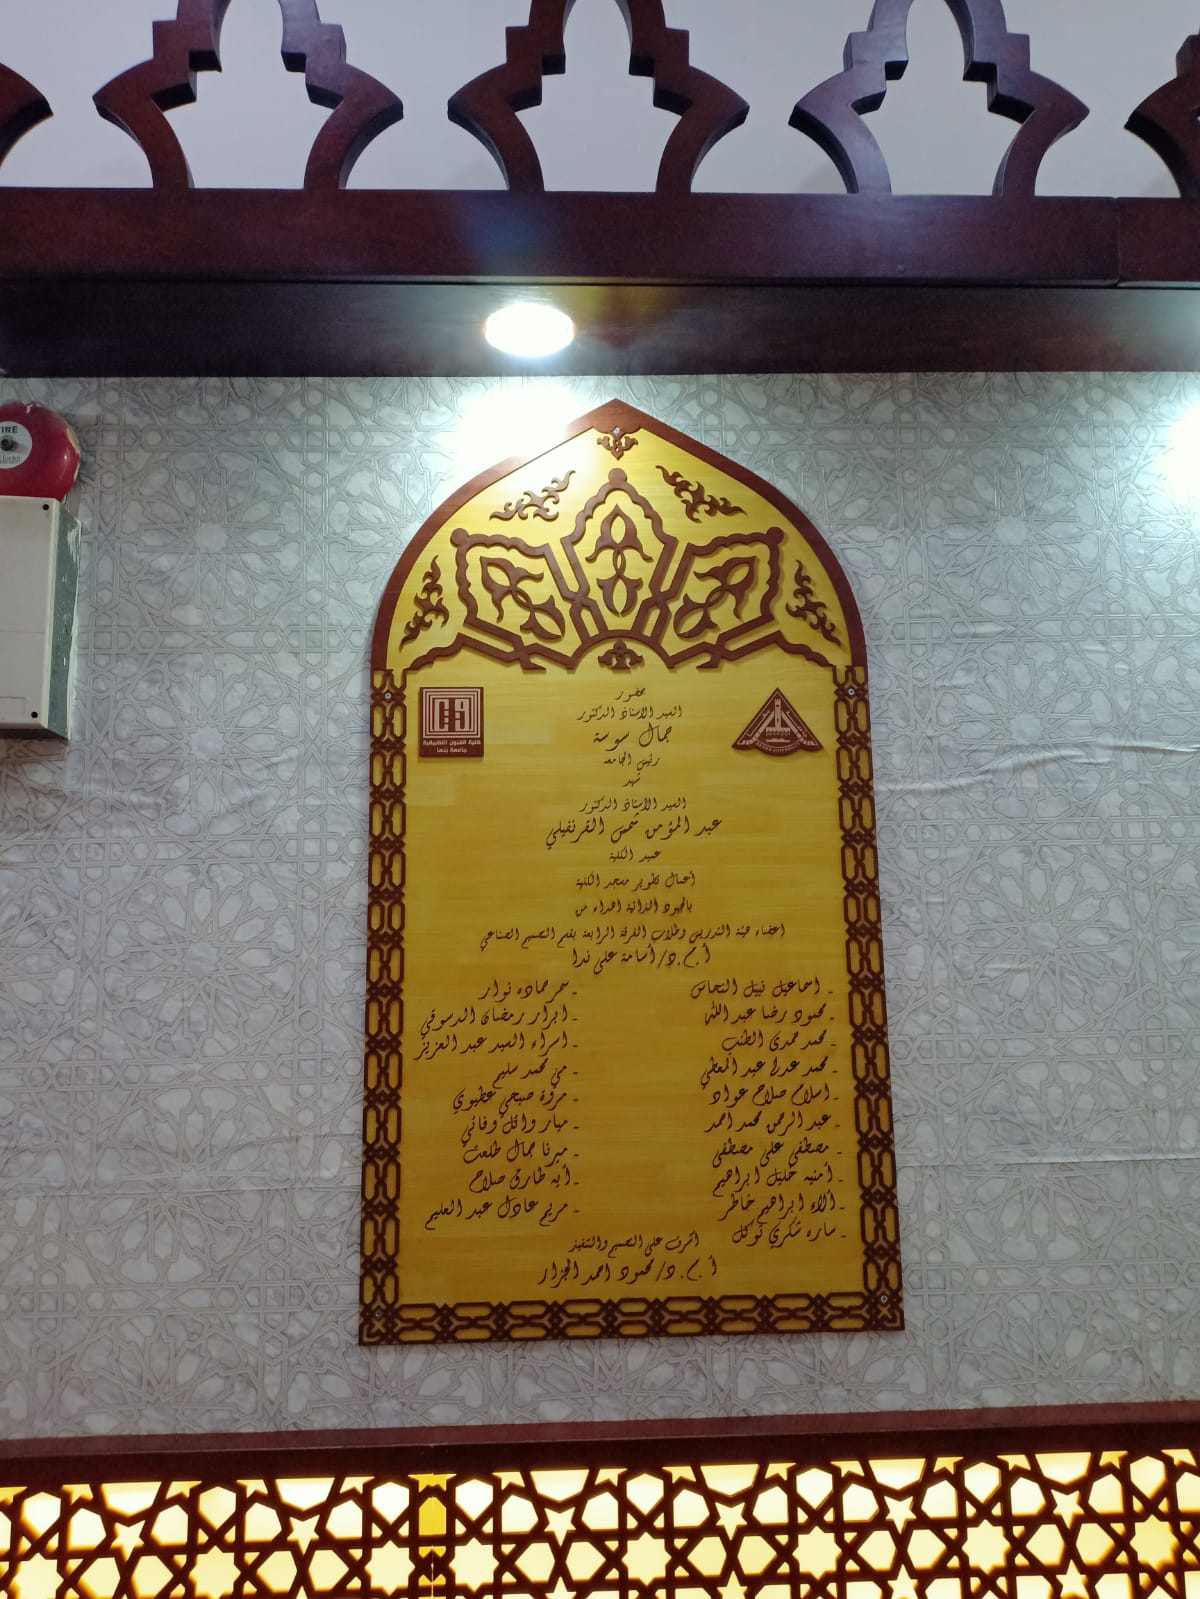 FIRE
بحضور
السيد الاستاذ الدكتور
جمال سوسة
رئيس الجامعه
شهد
السيد الأستاذ الدكتور
عبد المؤمن شمس القرنفيلي
عميد الكلية
أعمال تطوير مسجد الكلية
بالجهود الذاتية اهداء من
اعضاء هيئة التدريس وطلاب الفرقة الرابعة بقسم التصميم الصناعي
أ.م.د/ أسامة على ندا
- اسماعيل نبيل النحاس
- محمود رضا عبد اللاه
- محمد حمدى
- محمد عدلى عبد المعطي
- اسلام صلاح عواد
- عبد الرحمن محمد احمد
- مصطفى على مصطفى
- أمنيه خليل ابراهيم
- ألاء ابراهيم خاطر
- ساره شكري توكل
- سمر حماده نوار
- ابرار رمضان الدسوقي
- اسراء السيد عبد العزيز
- مي محمد سليم
- مروة صبحي عطيوي
- ميار وائل وفائي
- ميرنا جمال طلعت
- أيه طارق صلاح
- مريم عادل عبد العليم
أشرف على التصميم والتنفيذ
أ.م.د/ محمود احمد الجزار
كلية الفنون التطبيقية
جامعة بنها
BENHA UNIVERSITY